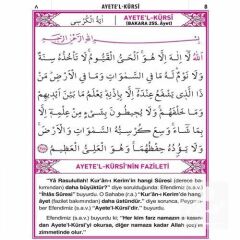 ٨ AYETE'L-KÜRSİ 8
اٰيَةُ الْكُرْسِى
AYETE'L-KÜRSİ
(BAKARA 255. Âyet)
بِسْمِ اللهِ الرَّحْمٰنِ الرَّحِيمِ
اَللهُ لَا اِلٰهَ اِلَّا هُوَ الْحَىُّ الْقَيُّومُ لَا تَاْخُذُهُ سِنَةٌ
وَلَا نَوْمٌ لَهُ مَا فِى السَّمٰوَاتِ وَمَا فِى الْاَرْضِ مَنْ
ذَا الَّذِى يَشْفَعُ عِنْدَهُ اِلَّا بِاِذْنِهِ يَعْلَمُ مَا بَيْنَ اَيْدِيهِمْ
وَمَا خَلْفَهُمْ وَلَا يُحِيطُونَ بِشَىْءٍ مِنْ عِلْمِهِ اِلَّا
بِمَا شَاءَ وَسِعَ كُرْسِيُّهُ السَّمٰوَاتِ وَالْاَرْضَ
وَلَا يَؤُدُهُ حِفْظُهُمَا وَهُوَ الْعَلِىُّ الْعَظِيمُ
AYETE'L-KÜRSİ'NİN FAZİLETİ
"Yâ Rasulullah! Kur'ân-ı Kerim'in hangi Sûresi (derece
bakımından) daha büyüktür?" diye sorulduğunda; Efendimiz (s.a.v.)
"İhlâs Sûresi" buyurdu. O Sahabe (r.a.) "Kur'ân-ı Kerim'in hangi
âyet (fazilet bakımından) daha üstündür." diye sorunca, Peygamber
Efendimiz (s.a.v.) "Ayete'l-Kürsi'dir." buyurdu.
Efendimiz (s.a.v.) buyurdu ki: "Her kim farz namazın a
dan Ayete'l-Kürsi'yi okursa, diğer namaza kadar Allah
zimmetinde olur."